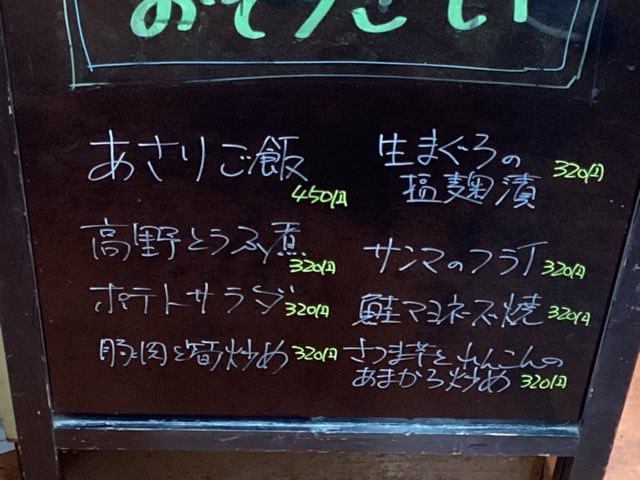 おそうざい
あさりご飯
450円
高野とうふ煮
320円
ポテトサラダ
320円
豚肉と筍炒め 320円
生まぐろの
塩麹漬
320円
サンマのフライ 320円
鮭マヨネーズ焼 320円
さつま芋とれんこんの
あまから炒め 320円